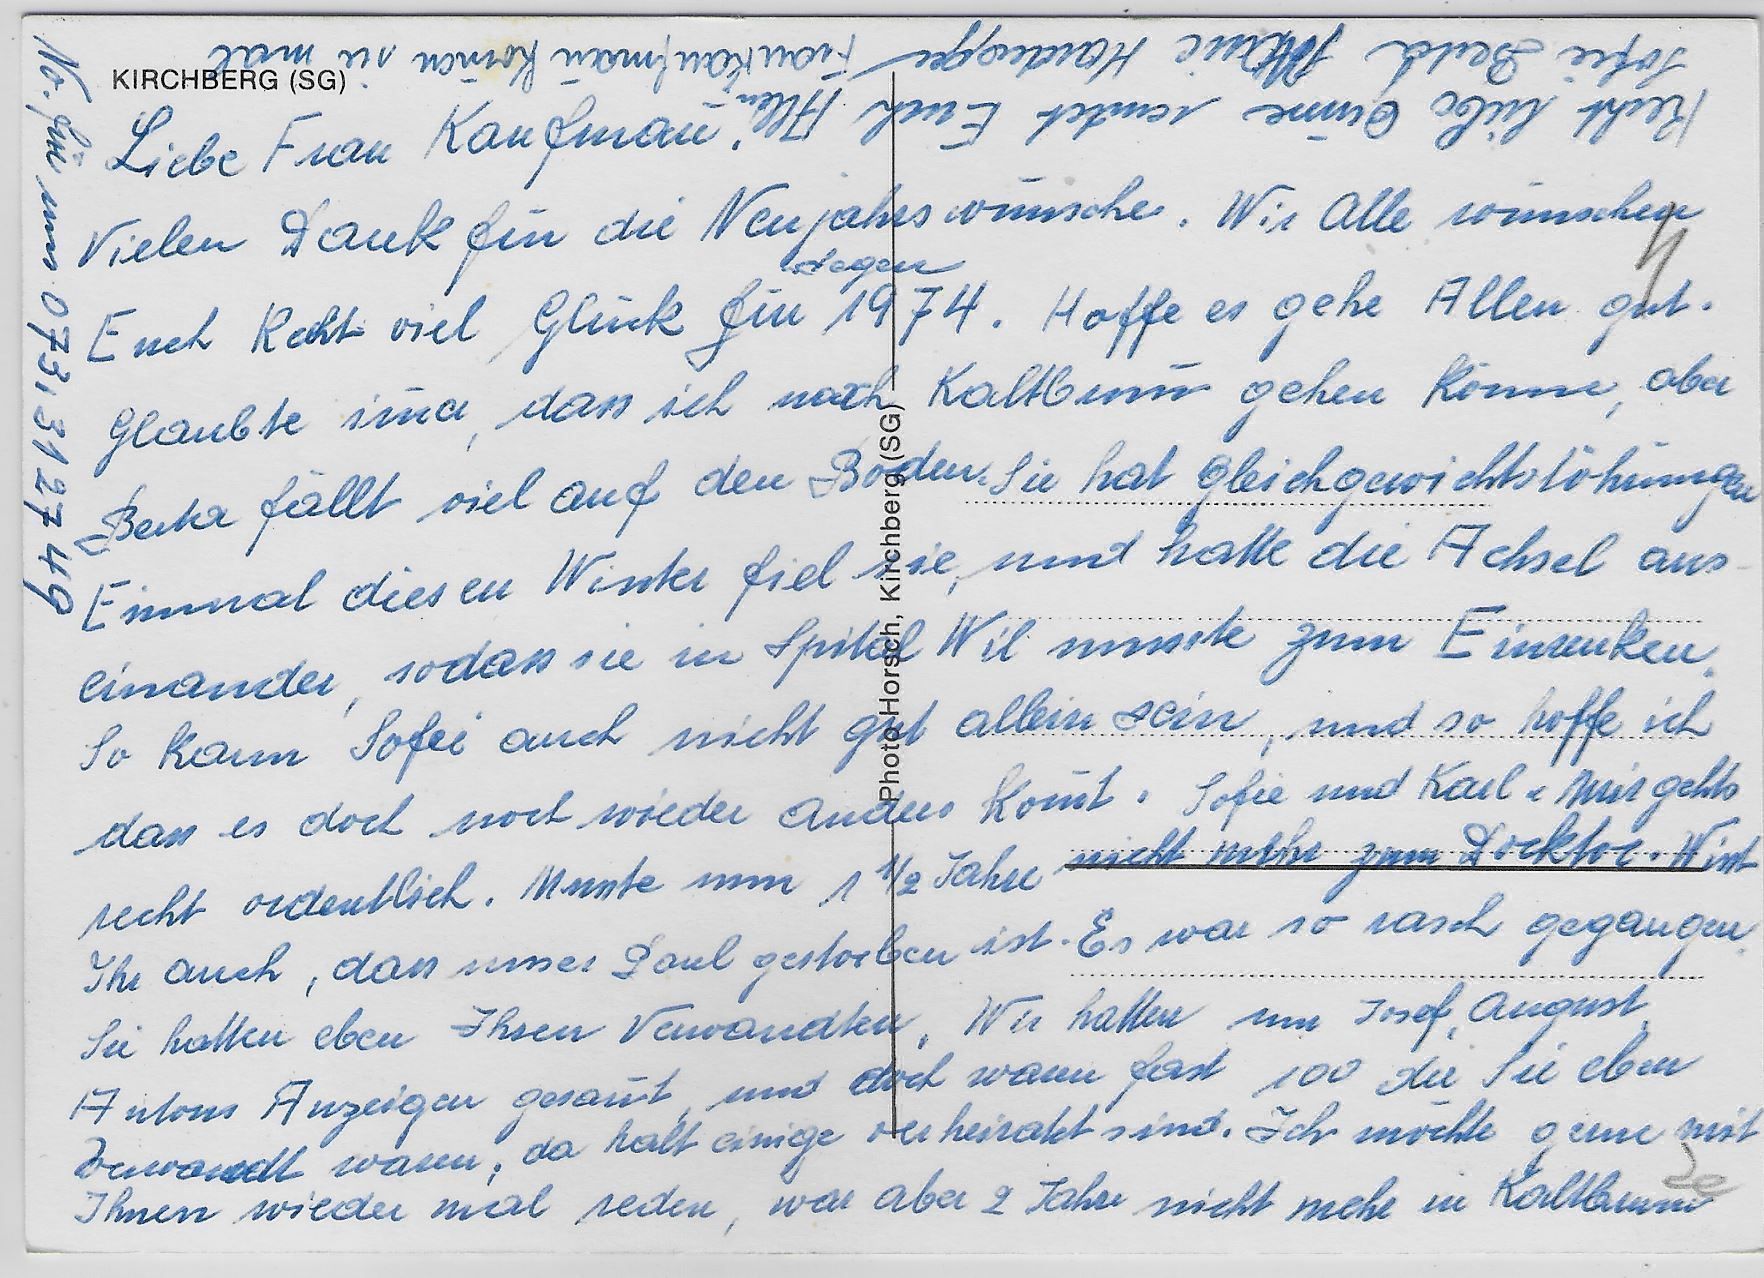 KIRCHBERG (SG)
Liebe Frau Kaufmann!
Vielen Dank für die Neujahrswünsche. Wir Alle wünschen
Segen
Euch Recht viel Glück für 1974. Hoffe es gehe Allen gut.
Glaubte imer, dass ich nach Kaltbrunn gehen könne, aber
Berta fällt viel auf den Boden. Sie hat Gleichgewichtstöhrungen
Einmal diesen Winter fiel sie, und hatte die Achsel aus-
einander, sodass sie in Spital Wil musste zum Einrenken.
So kann Sofie auch nicht gut allein sein, und so hoffe ich
dass es doch noch wieder anders komt. Sofie und Karl u. Mir gehts
recht ordentlich. Musste nun 1 1/2 Jahre nicht mehr zum Docktor. Wisst
Ihr auch, dass unser Paul gestorben ist. Es war so rasch gegangen.
Sie hatten eben Ihren Verwandten, Wir hatten nur Josef, August,
Antons Anzeigen gesant, und doch waren fast 100 die Sie eben
Verwandt waren, da halt einige verheiratet sind. Ich möchte gerne mit
Ihnen wieder mal reden, war aber 2 Jahre nicht mehr in Kaltbrunn
Recht liebe Grüsse sendet Euch Allen
Sofie Berta Marie
Frau Kaufmann komen sie mal
No. für uns 073, 31 27 49
Photo Horsch, Kirchberg (SG)